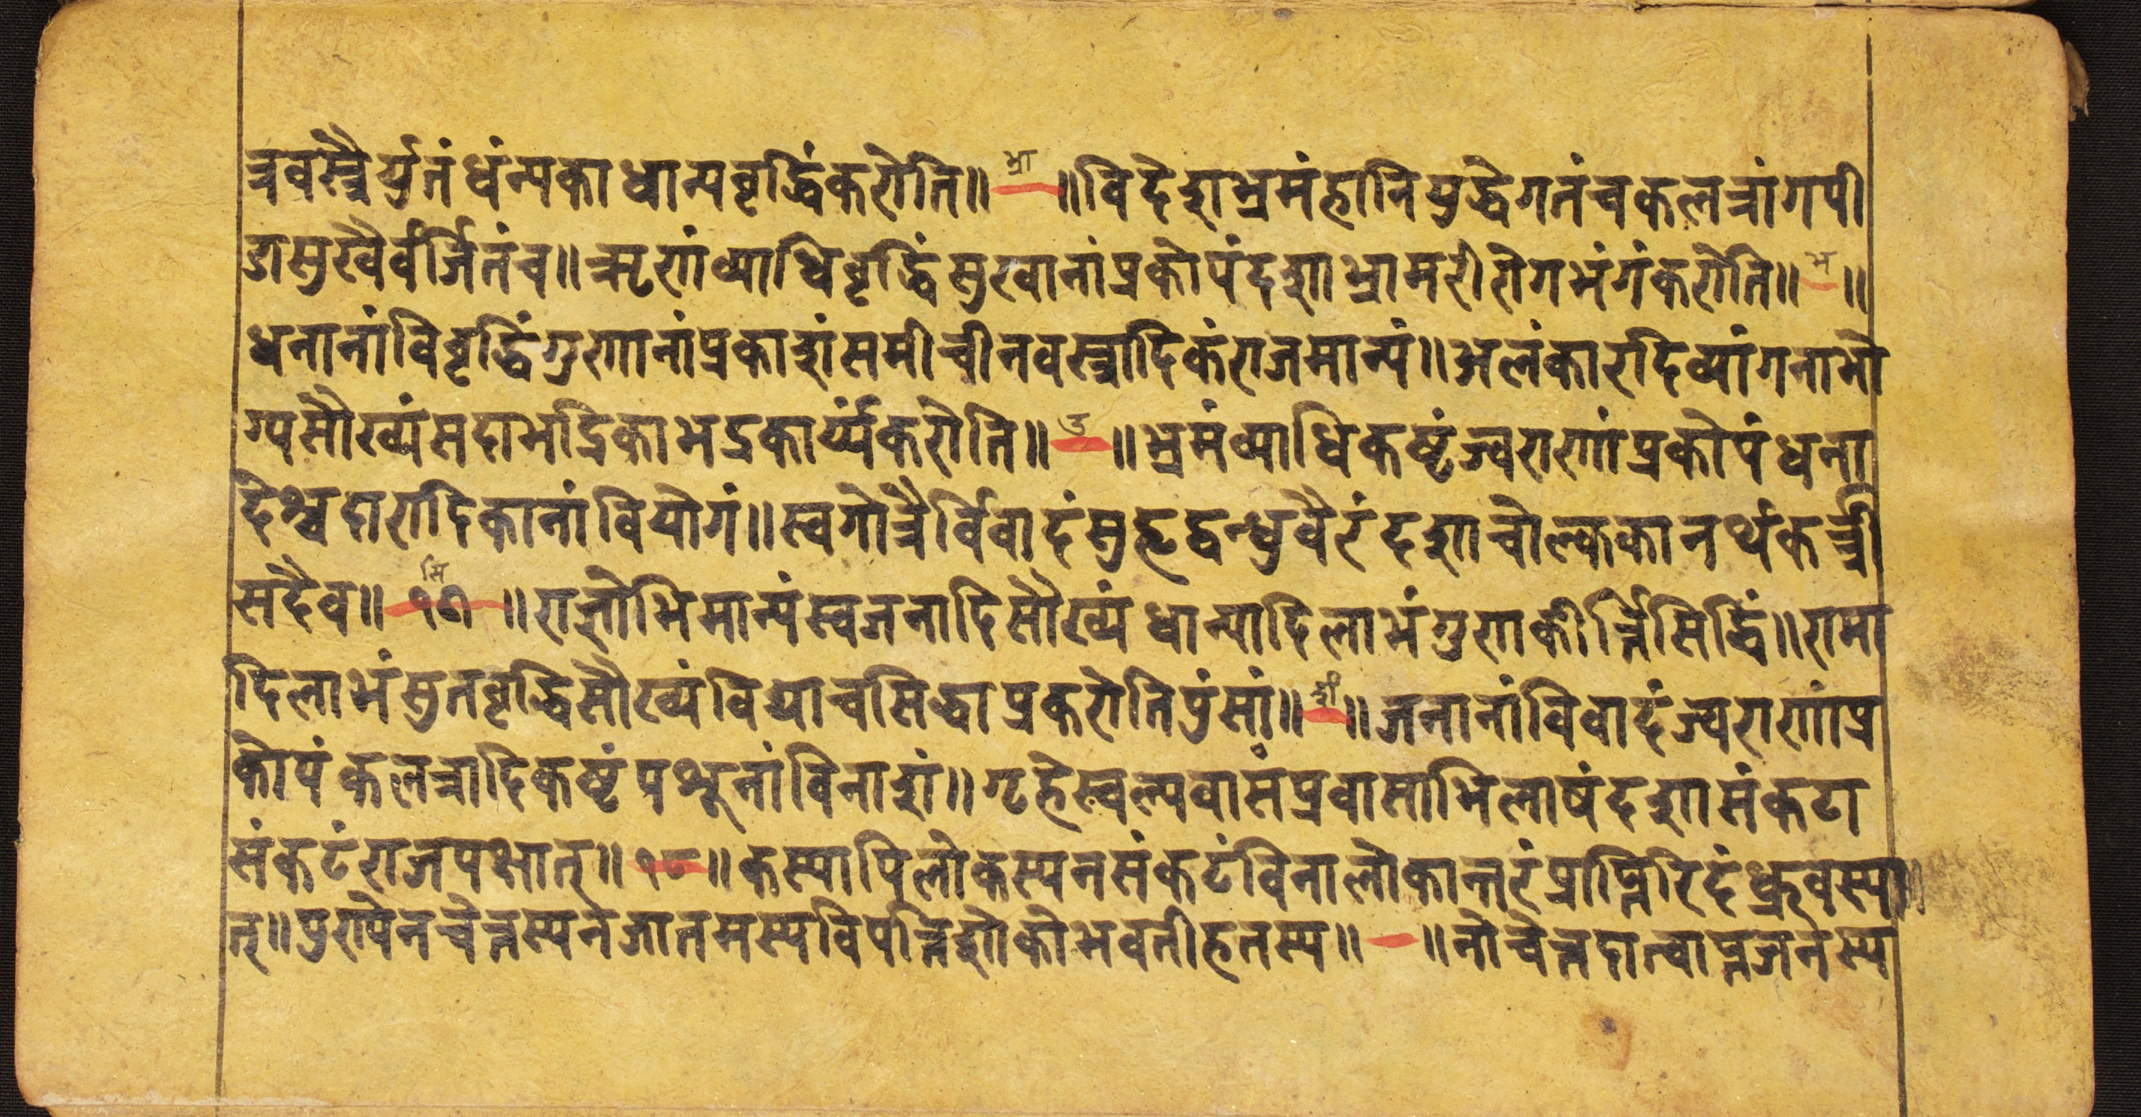 त्रवस्त्रैर्युतं धंन्यका धान्यवृद्धिं करोति॥ भ्रा ॥विदेशभ्रमं हानियुद्धेगतं च कलत्रांगपी
डा सुखैर्वर्जितं च॥ ऋणं व्याधिवृद्धिं सुखानां प्रकोपं दशा भ्रामरी रोगभंगं करोति॥ भ ॥
धनानां विवृद्धिं गुणानां प्रकाशं समीचीनवस्त्रादिकं राजमान्यं॥ अलंकारदिव्यांगनाभो
ग्यसौख्यं सदा भद्रिका भद्रकार्य्यं करोति॥ उ ॥भ्रमं व्याधिकष्टं ज्वराणां प्रकोपं धना
देश्च दारादिकानां वियोगं॥ स्वगोत्रैर्विवादं सुहृद्बन्धुवैरं दशा चोल्कका नर्थकर्त्री
सदैव॥ सि १७ ॥राज्ञोभिमान्यं स्वजनादिसौख्यं धान्यादिलाभं गुणकीर्त्तिसिद्धिं॥ रामा
दिलाभं सुतवृद्धिसौख्यं विद्या च सिद्धा प्रकरोति पुंसां॥ ॥जनानां विवादं ज्वराणां प्र
कोपं कलत्रादिकष्टं पश्रूनां विनाशं॥ गृहे स्वल्पवासं प्रवासाभिलाषं दशा संकटा
संकटं राजपक्षात्॥ १८ ॥कस्यापि लोकस्य न संकटं विना लोकान्तरं प्राप्तिरिदं ध्रुवं स्या
त्॥ पुरापेन चेत्तस्य न जातमस्य विपत्तिशोको भवतीह तस्य॥ ॥नो चेत्तदा त्वाप्तजनस्य